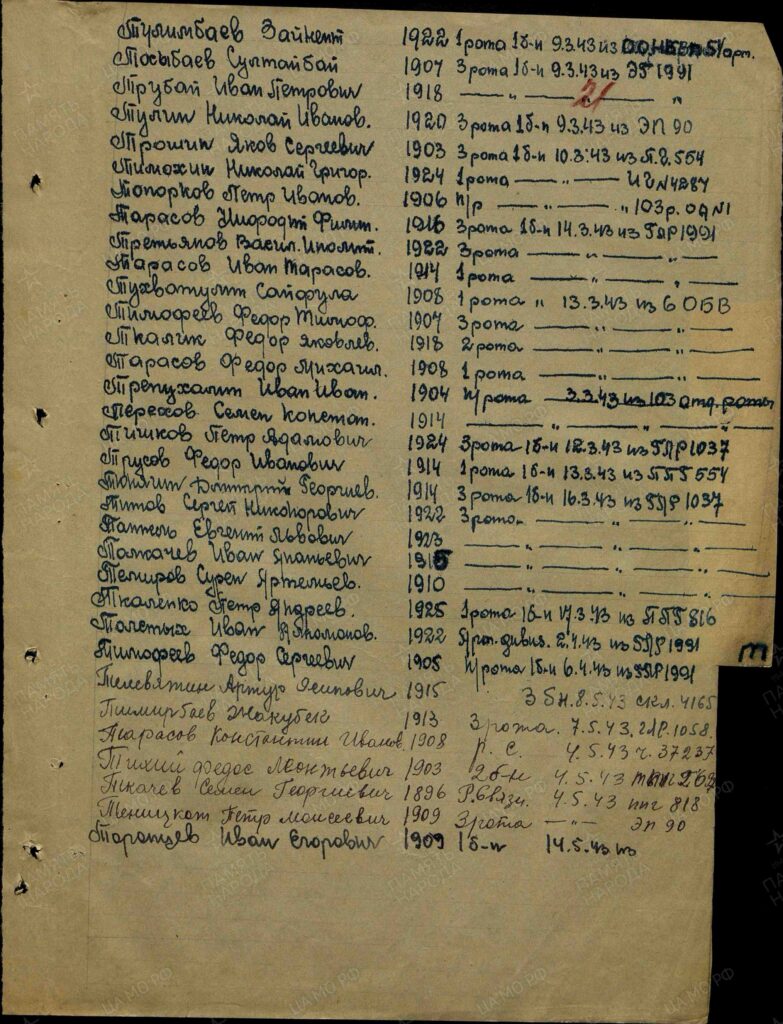 Тулимбаев Зайнент 1922 1 рота 1б-н 9.3.43 из арт.
Тосыбаев Султайбай 1907 3 рота 1б-н 9.3.43 из ЭГ 1991
Трубай Иван Петрович 1918 — " — 21 — "
Тулин Николай Иванов. 1920 3 рота 1б-н 9.3.43 из ЭП 90
Трошин Яков Сергеевич 1903 3 рота 1б-н 10.3.43 из П.Г. 554
Тимохин Николай Григор. 1924 1 рота — " — №4287
Топорков Петр Иванов. 1906 п/р — " — " 103 р.
Тарасов Филип. 1916 3 рота 1б-н 14.3.43 из ГЛР 1991
Третьяков Васил. Иполит. 1922 3 рота — " — " —
Тарасов Иван Тарасов. 1914 1 рота — " — "
Тухватулин Сайфула 1908 1 рота " 13.3.43 из 6 ОБВ
Тимофеев Федор Тимоф. 1907 3 рота — " — " —
Ткалик Федор Яковлев. 1918 2 рота — " — " —
Тарасов Федор Михаил. 1908 1 рота — " — " —
Трепухалин Иван Иван. 1904 п/рота 3.3.43 из 103 отд. роты
Терехов Семен Констан. 1914 — " — " — "
Тишков Петр Адамович 1924 3 рота 1б-н 12.3.43 из ГЛР 1037
Трусов Федор Иванович 1914 1 рота 1б-н 13.3.43 из ППГ 554
Дмитрий Георгиев. 1914 3 рота 1б-н 16.3.43 из ГЛР 1037
Титов Сергей Никонорович 1922 3 рота — " — " —
Евгений Львович 1923 — " — " —
Толкачев Иван Ананьевич 1915 — " — " —
Темиров Сурен Артемьев. 1910 — " — " —
Ткаленко Петр Андреев. 1925 1 рота 1б-н 17.3.43 из ППГ 816
Толстых Иван 1922 Арт. дивиз. 2.4.43 из ГЛР 1991
Тимофеев Федор Сергеевич 1905 п/рота 1б-н 6.4.43 из ГЛР 1991
Т
Телевяткин Артур Осипович 1915 3 бн. 8.5.43 скл. 4165
Тимирбаев Жакубек 1913 3 рота. 7.5.43. ГЛР. 1058.
Тарасов Константин Иванов. 1908 Р. С. 4.5.43 ч. 37237
Тихий Федос Леонтьевич 1903 2б-н 4.5.43
Ткачев Семен Георгиевич 1896 Р. связи. 4.5.43 ппг 818
Петр Моисеевич 1909 3 рота — " — ЭП 90
Торопцев Иван Егорович 1909 1б-н 14.5.43 из